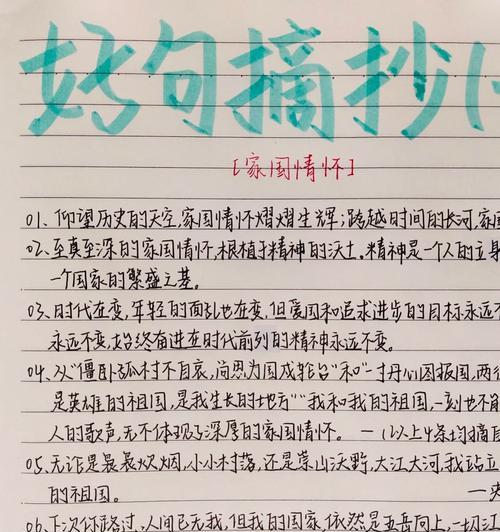 好句摘抄
[家国情怀]
01、仰望历史的天空,家国情怀熠熠生辉;跨越时间的长河,家国
02、至真至深的家国情怀,根植于精神的沃土。精神是一个人的立身
一个国家的繁盛之基。
03、时代在变,年轻的面孔也在变,但爱国和追求进步的目标永远不
永远不变,始终奋进在时代前列的精神永远不变。
04、从“僵卧孤村不自哀,尚思为国戍轮台”和“一寸丹心图报国,两行
是英雄的祖国,是我生长的地方”“我和我的祖国,一刻也不能
人的歌声,无不体现了深厚的家国情怀。—(以上4条均摘自
05、无论是袅袅炊烟,小小村落,还是崇山沃野,大江大河,我站立
的祖国。
06、下次你路过,人间已无我,但我的国家,依然是五岳向上,一切江